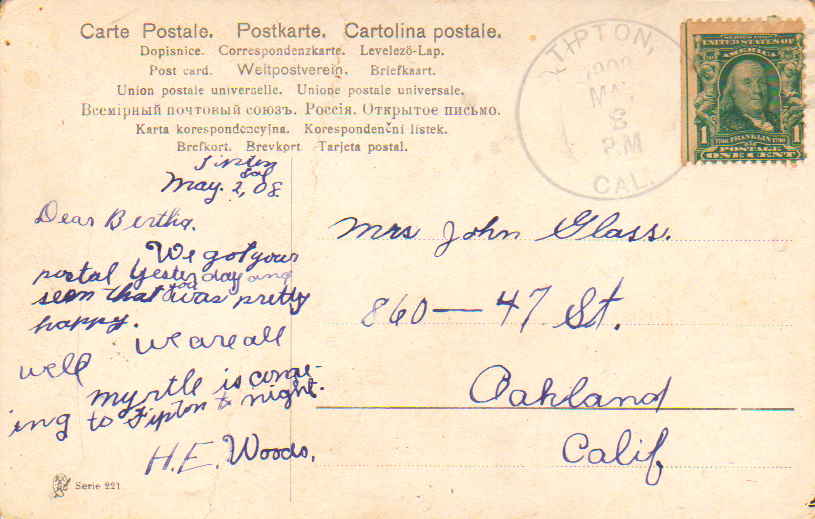 Carte Postale. Postkarte. Cartolina postale.
Dopisnice. Correspondenzkarte. Levelező-Lap.
Post card. Weltpostverein. Briefkaart.
Union postale universelle. Unione postale universale.
Всемірный почтовый союзъ. Россія. Открытое письмо.
Karta korespondencyjna. Korespondenční lístek.
Brefkort. Brevkort. Tarjeta postal.
TIPTON,
1908
MAY
8
P.M
CAL.
UNITED STATES OF
AMERICA
1 FRANKLIN 1
POSTAGE
ONE CENT
Tipton
Cal
May. 2, 08.
Dear Bertha.
We got your
postal yesterday and
seen that you was pretty
happy.
we are all
well
myrtle is come-
ing to Tipton to night.
H.E. Woods.
Mrs John Glass.
860 — 47 St.
Oakland
Calif
Serie 221